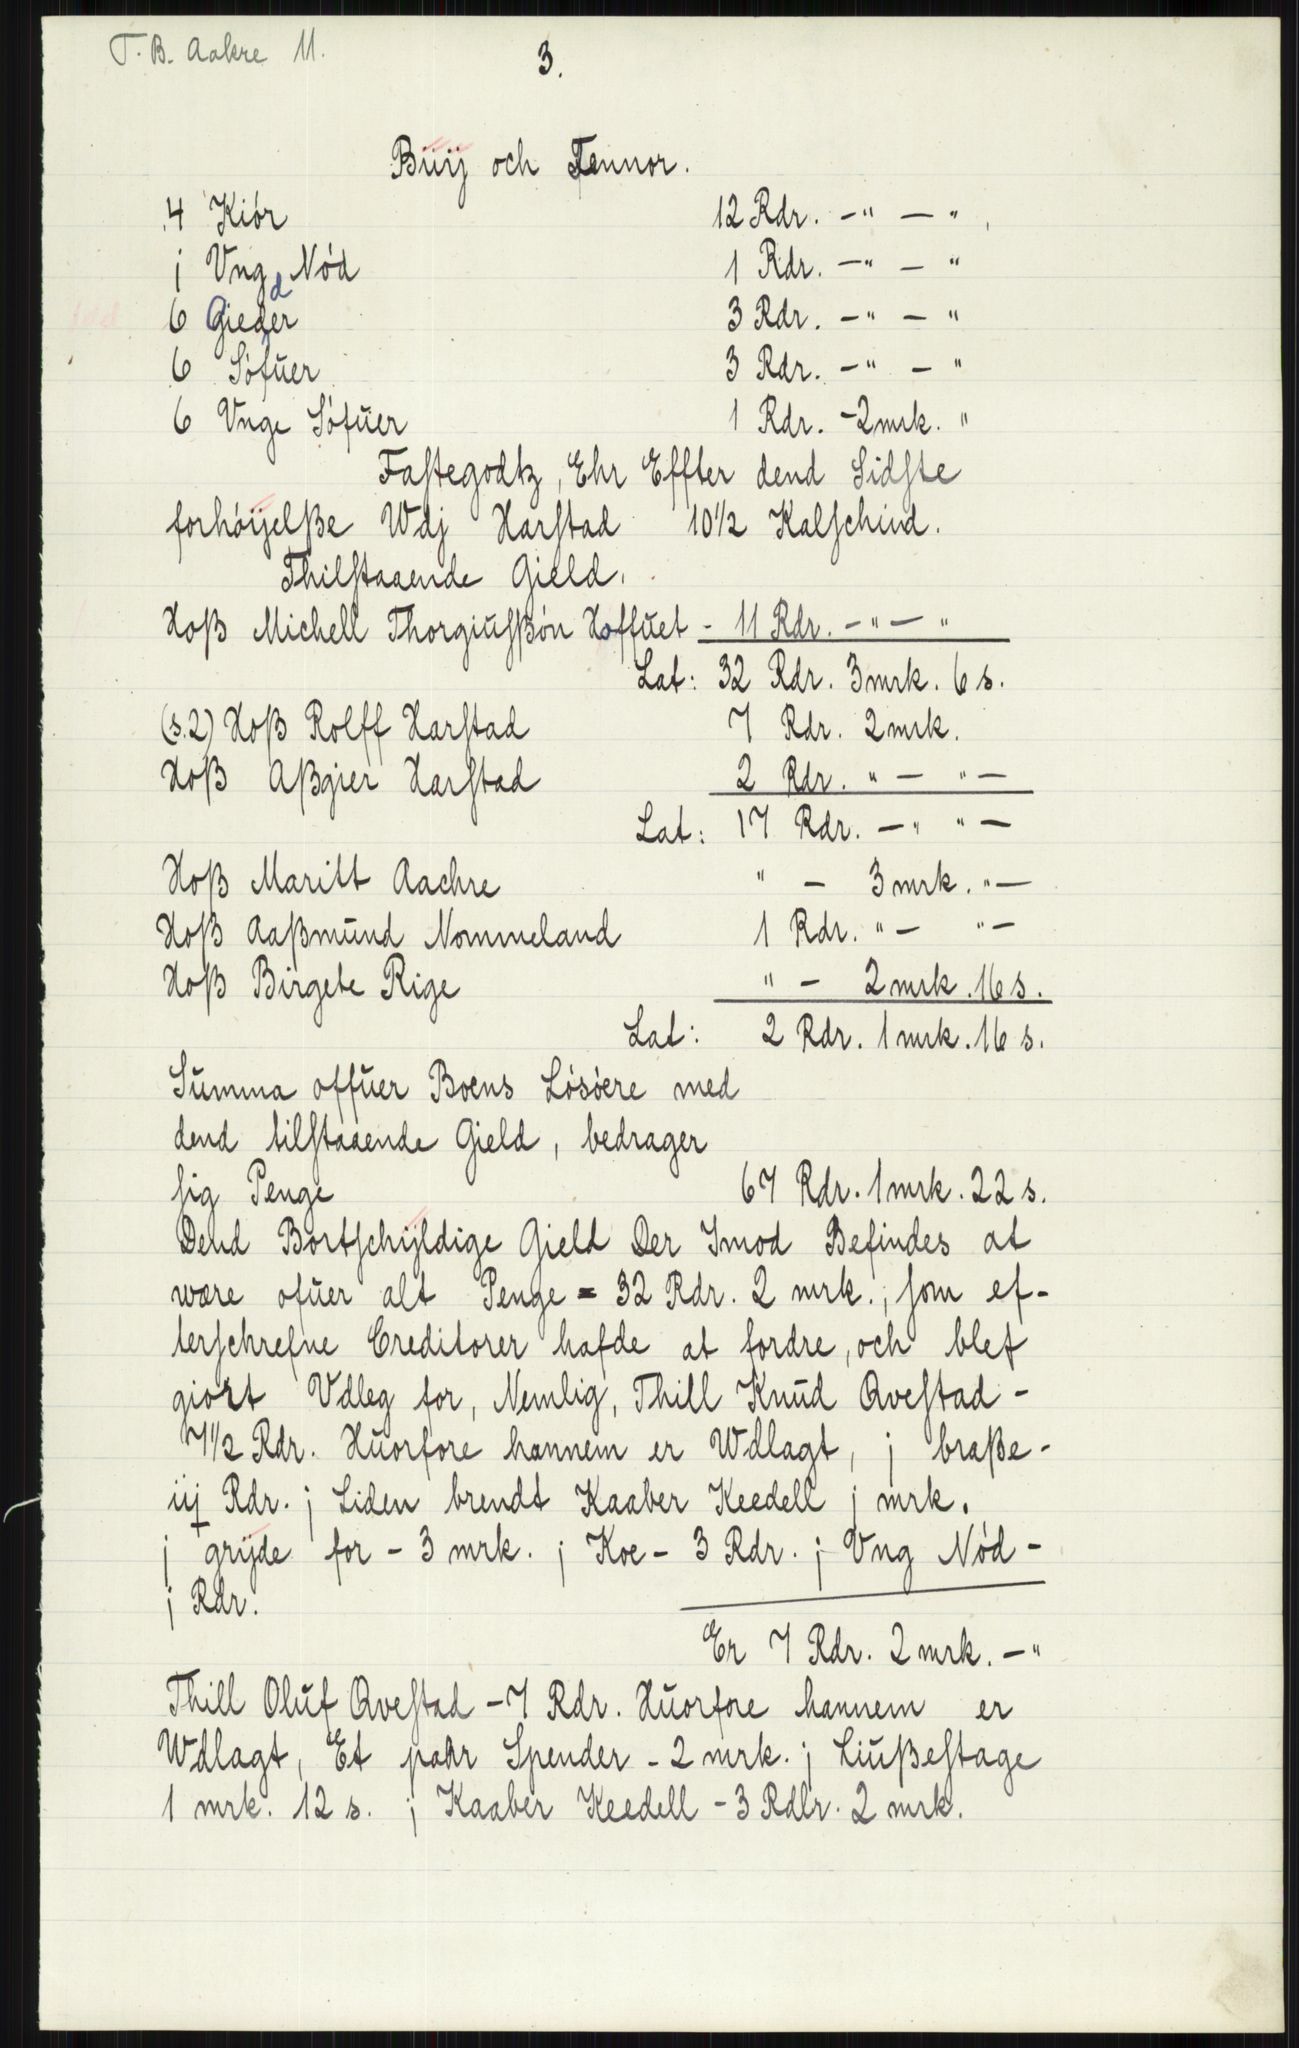 T. B. Aakre 11.
3.
Büij och Fennor.
4 Kiör 12 Rdr. -" - "
j Vng Nöd 1 Rdr. -" - "
6 Gieder 3 Rdr. -" - "
6 Söfuer 3 Rdr. -" - "
6 Vnge Söfüer 1 Rdr. -2 mrk. "
Fastegodtz, Ehr Effter dend Sidste
forhöijelße Wdj Harstad 10½ Kalschind.
Thilstaaende Gield.
Hoß Michell Thorgiußön Hoffuet - 11 Rdr. -" - "
Lat: 32 Rdr. 3 mrk. 6 s.
(s.2) Hoß Rolff Harstad 7 Rdr. 2 mrk.
Hoß Aßgier Harstad 2 Rdr. " - " -
Lat: 17 Rdr. -" " -
Hoß Maritt Aachre " - 3 mrk. " -
Hoß Aaßmund Nommeland 1 Rdr. " - " -
Hoß Birgete Rige " - 2 mrk. 16 s.
Lat: 2 Rdr. 1 mrk. 16 s.
Summa offuer Boens Lösöere med
dend tilstaaende Gield, bedrager
sig Penge 67 Rdr. 1 mrk. 22 s.
Dend Bortschijldige Gield Der Imod Befindes at
være ofuer alt Penge = 32 Rdr. 2 mrk., som ef-
terschrefne Creditorer hafde at fordre, och blef
giort Vdleg for, Nemlig, Thill Knud Qvestad -
7½ Rdr. Huorfore hannem er Wdlagt, j braße -
iij Rdr. j Liden brendt Kaaber Keedell j mrk.
j grijde for - 3 mrk. j Koe - 3 Rdr. j Vng Nöd -
j Rdr.
Er 7 Rdr. 2 mrk. - "
Thill Oluf Qvestad - 7 Rdr. Huorfore hannem er
Wdlagt, Et paar Spender - 2 mrk. j Liußestage
1 mrk. 12 s. j Kaaber Keedell - 3 Rdlr. 2 mrk.